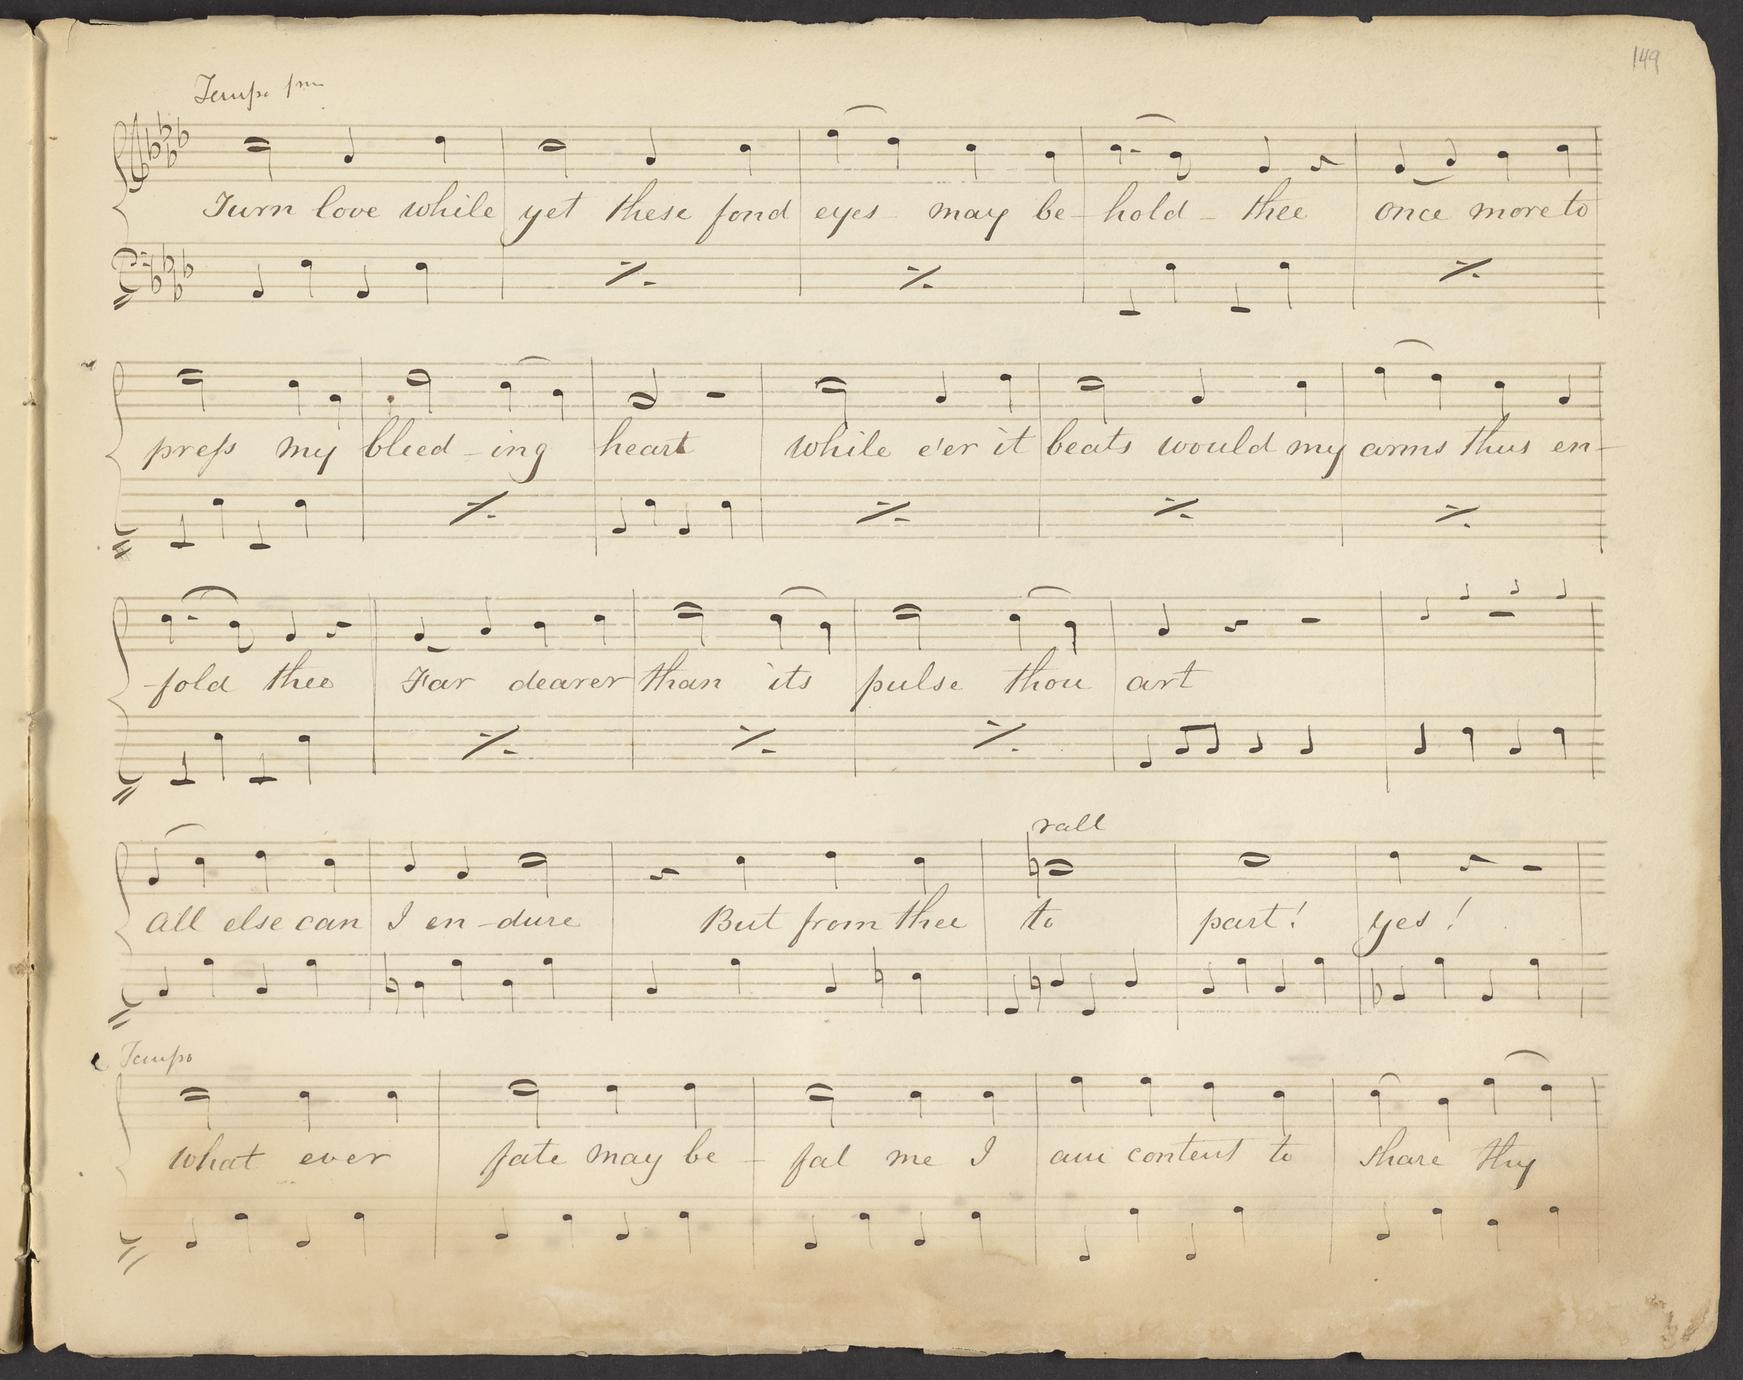 149
Tempo 1mo
Turn love while yet these fond eyes may be- hold - thee once more to
press my bleed - ing heart while e'er it beats would my arms thus en-
-fold thee Far dearer than its pulse thou art
rall
All else can I en - dure But from thee to part! yes!
Tempo
What ever fate may be - fal me I am content to share thy